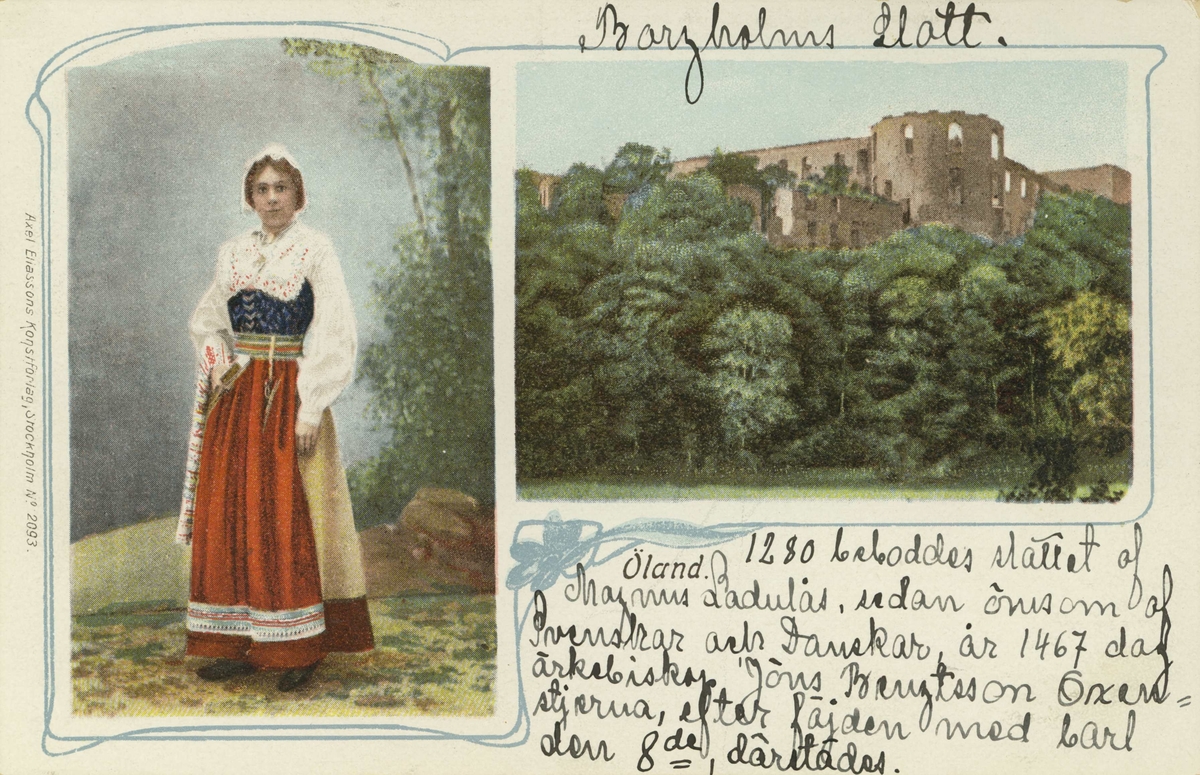 Borgholms Slott.
Öland.
1280 beboddes slottet af
Magnus Ladulås, sedan ömsom af
Svenskar och Danskar, år 1467 dog
ärkebiskop Jöns Bengtsson Oxen=
stjerna, efter fäjden med Carl
den 8de, därstädes.
Axel Eliassons Konstförlag, Stockholm Nº 2093.